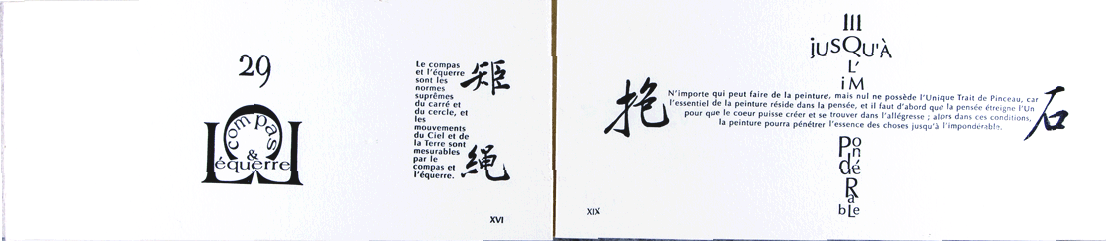 29
compas
&
équerre
Le compas
et l'équerre
sont les
normes
suprêmes
du carré et
du cercle, et
les
mouvements
du Ciel et de
la Terre sont
mesurables
par le
compas et
l'équerre.
矩
绳
XVI
III
jUSQU'À
L'
iM
抱
N'importe qui peut faire de la peinture, mais nul ne possède l'Unique Trait de Pinceau, car
l'essentiel de la peinture réside dans la pensée, et il faut d'abord que la pensée étreigne l'Un
pour que le coeur puisse créer et se trouver dans l'allégresse ; alors dans ces conditions,
la peinture pourra pénétrer l'essence des choses jusqu'à l'impondérable.
石
Pon
dé
Ra
bLe
XIX